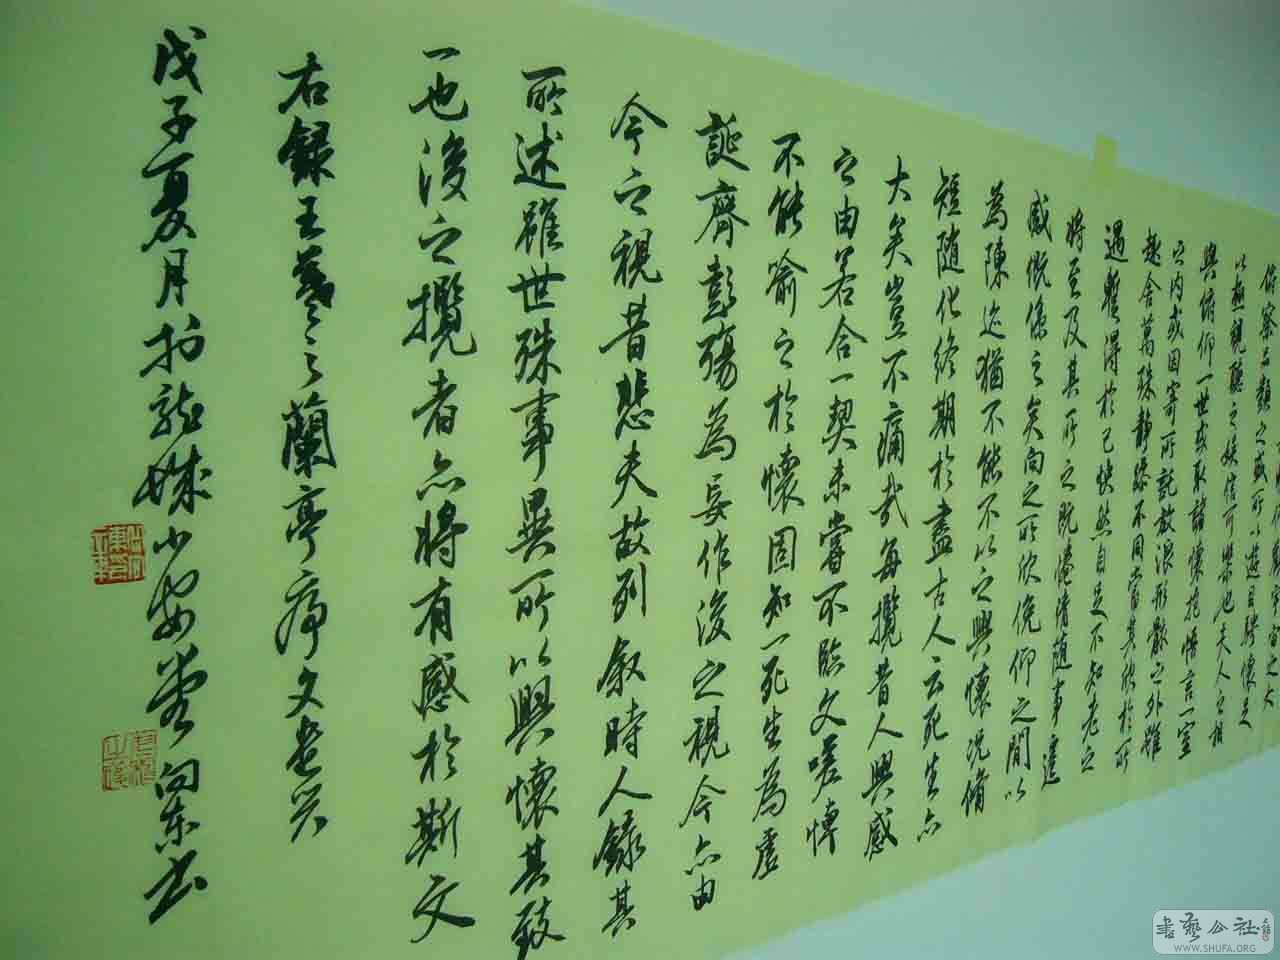 仰察品類之盛所以遊目騁懷足
以極視聽之娛信可樂也夫人之相
與俯仰一世或取諸懷抱悟言一室
之內或因寄所託放浪形骸之外雖
趣舍萬殊靜躁不同當其欣於所
遇暫得於己快然自足不知老之
將至及其所之既惓情随事遷
感慨係之矣向之所欣俛仰之間以
為陳迹猶不能不以之興懷況脩
短随化終期於盡古人云死生亦
大矣豈不痛哉每攬昔人興感
之由若合一契未嘗不臨文嗟悼
不能喻之於懷固知一死生為虛
誕齊彭殤為妄作後之視今亦由
今之視昔悲夫故列叙時人錄其
所述雖世殊事異所以興懷其致
一也後之攬者亦將有感於斯文
右錄王羲之蘭亭序文
戊子夏月於龍城
書藝公社
WWW.SHUFA.ORG